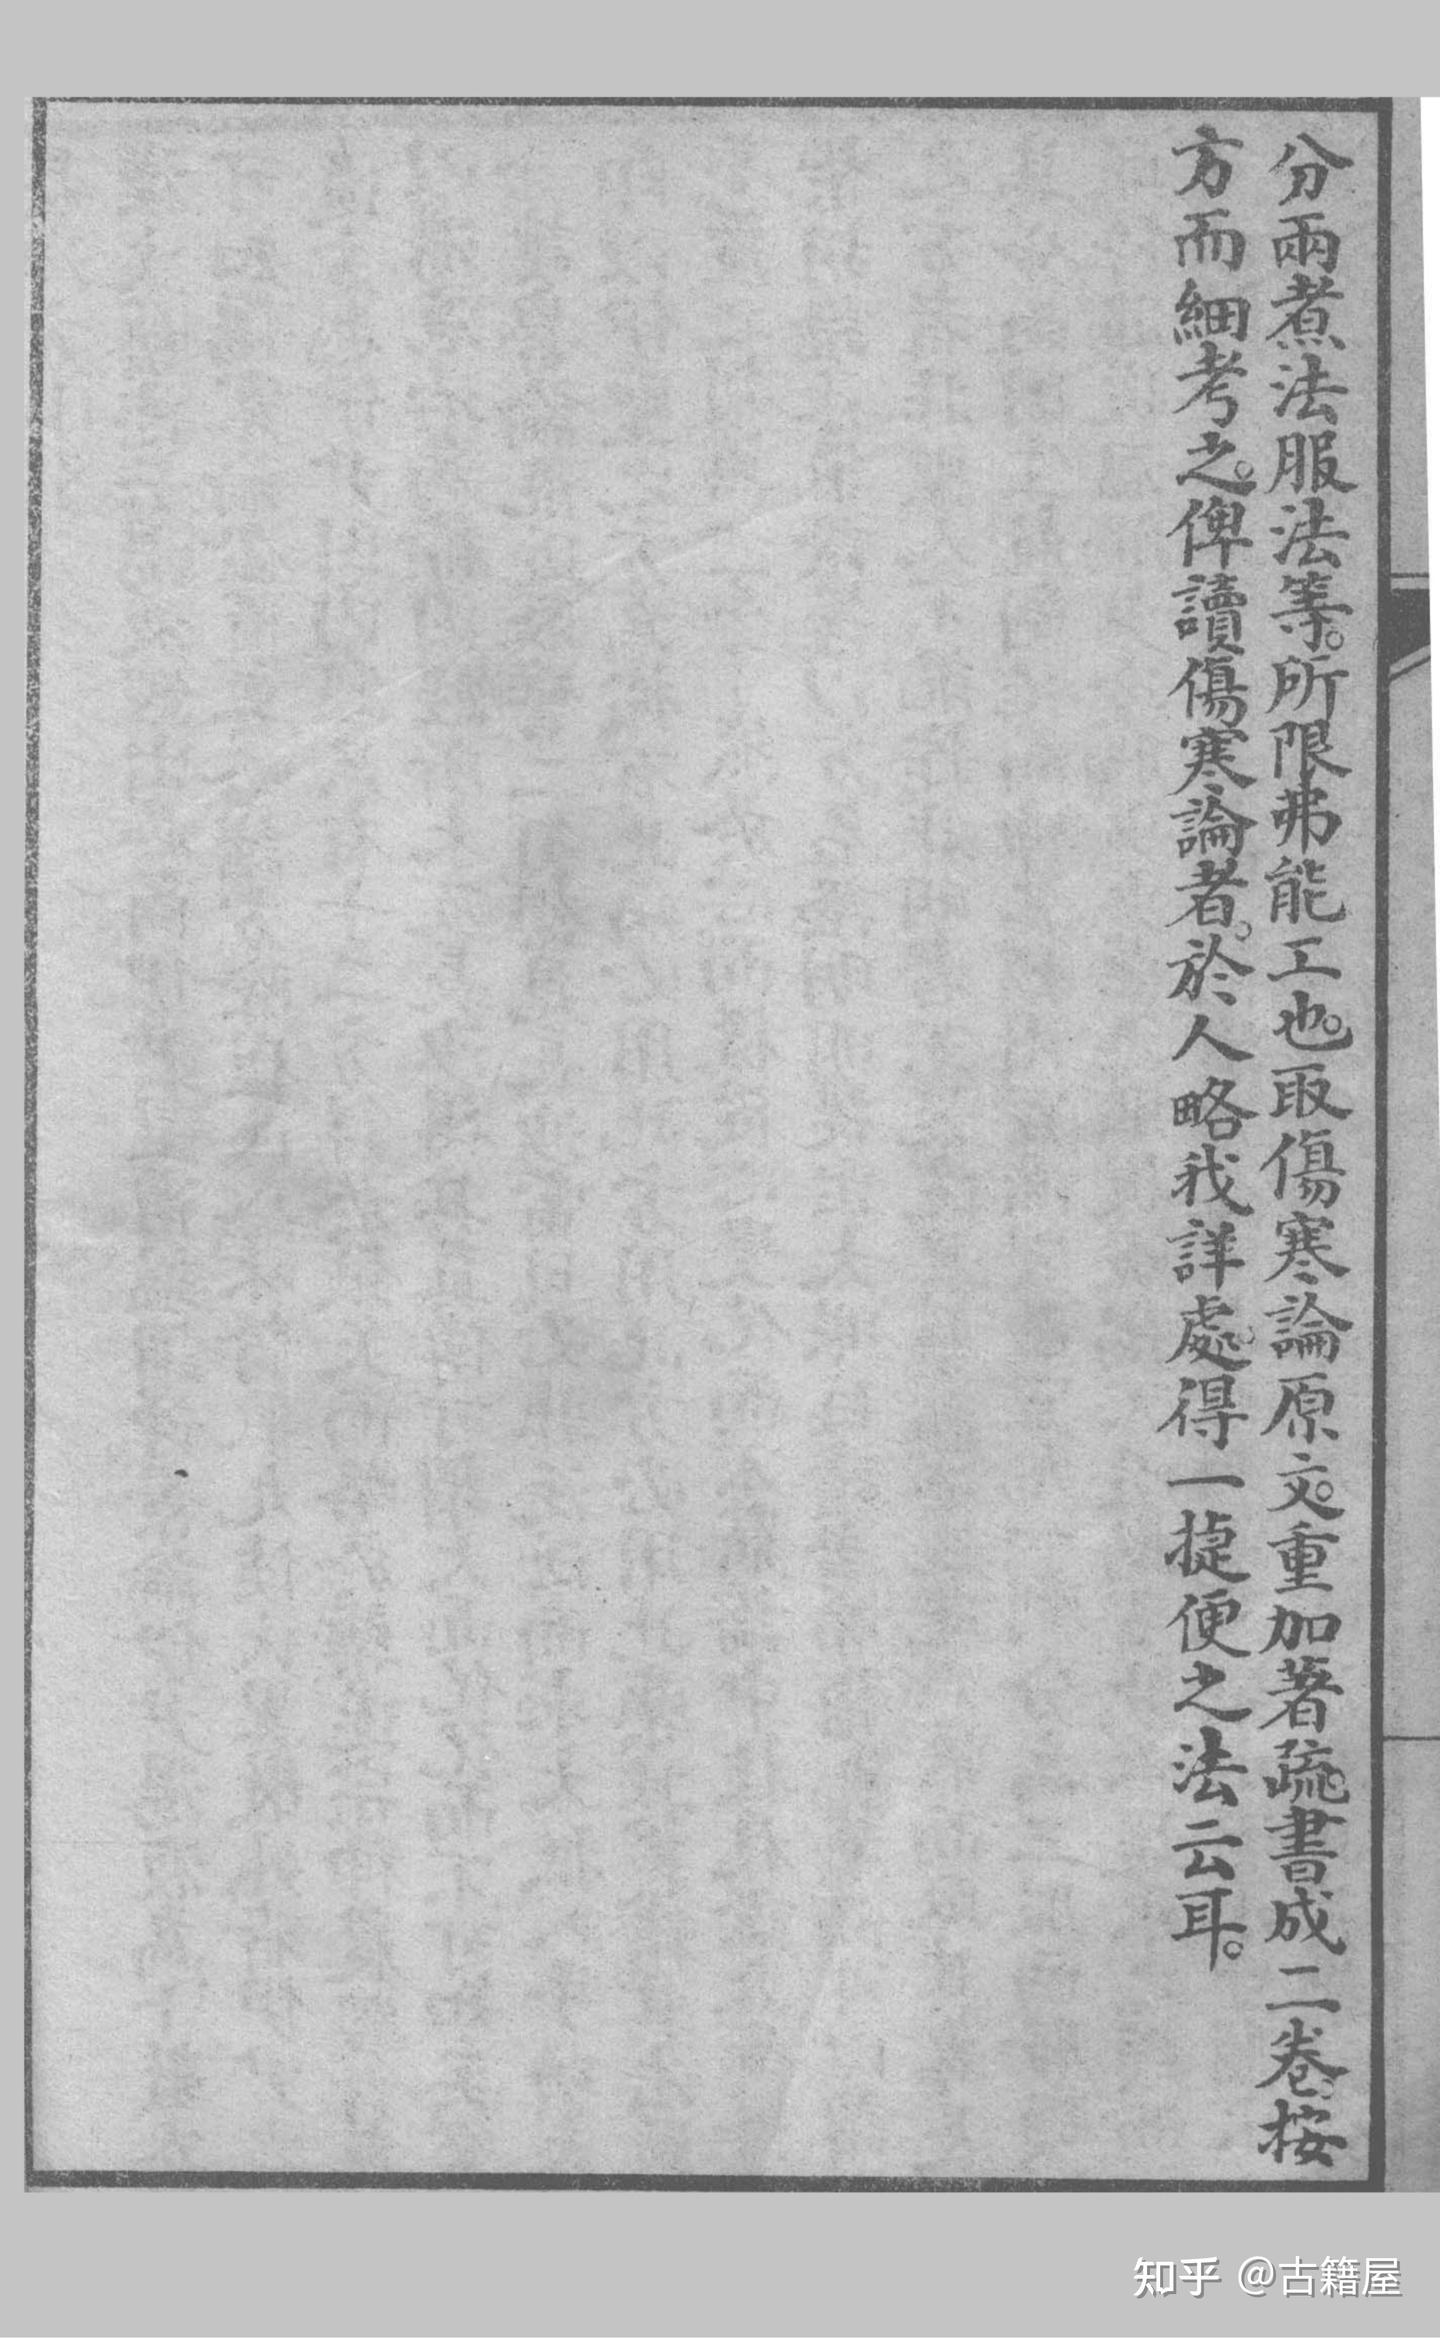 分兩煮法服法等。所限弗能工也。取傷寒論原文。重加著疏。書成二卷。按
方而細考之。俾讀傷寒論者。於人略我詳處。得一捷便之法云耳。
知乎 @古籍屋